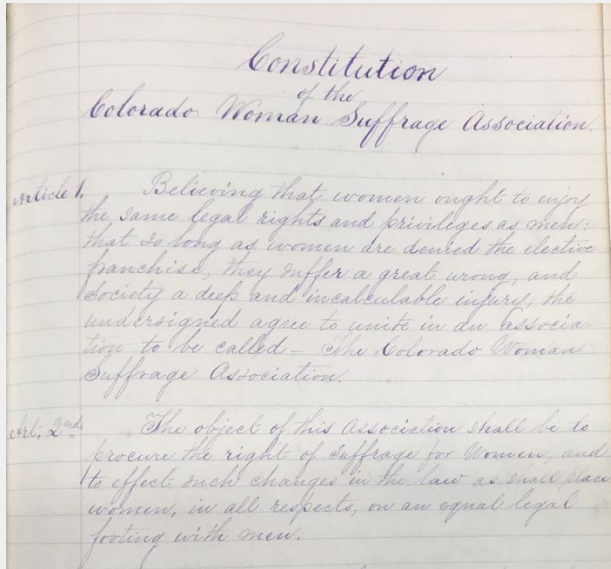 Constitution
of the
Colorado Woman Suffrage Association.
Article 1. Believing that women ought to enjoy
the same legal rights and privileges as men:
that so long as women are denied the elective
franchise, they suffer a great wrong, and
society a deep and incalculable injury, the
undersigned agree to unite in an associa-
tion to be called – The Colorado Woman
Suffrage Association.
Art. 2nd. The object of this Association shall be to
procure the right of suffrage for Women, and
to effect such changes in the law as shall place
women, in all respects, on an equal legal
footing with men.